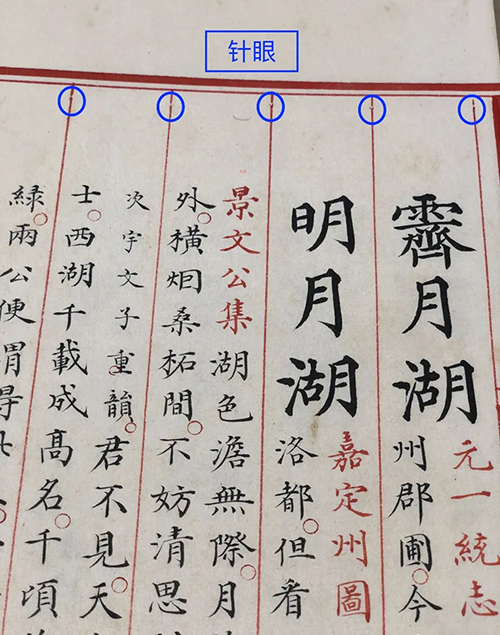 针眼
霽月湖
元一統志
州郡圃。今
明月湖
嘉定州圖
洛都。但看
景文公集湖色澹無際。月
外。橫烟桑柘間。不妨清思
次宇文子重韻。君不見。天
士。西湖千載成高名。千頃
緑。兩公便謂得